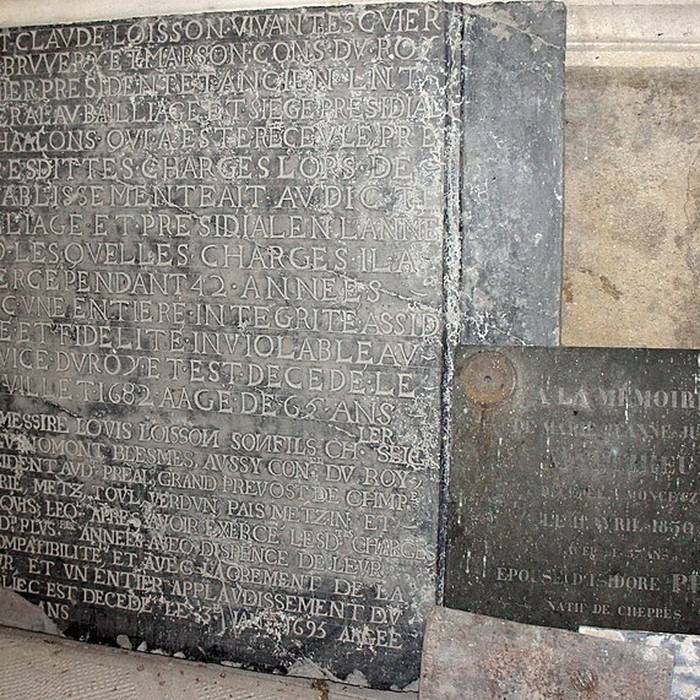 CLAVDE LOISSON VIVANT ESCVIER
BRVVERY ET MARSON CONS DV ROY
IER PRESIDENT ET ANCIEN LNT
ERAL AV BAILLIAGE ET SIEGE PRESIDIAL
HAALONS QVI A ESTE RECEV LE PRE
ESDITTES CHARGES LORS DE
ABLISSEMENT FAIT AVDICT
LIAGE ET PRESIDIAL EN LANNE
LESQVELLES CHARGES IL A
ERCE PENDANT 42 ANNEES
C VNE ENTIERE INTEGRITE ASSID
E ET FIDELITE INVIOLABLE AV
VICE DVROY ET EST DECEDE LE
VILLET 1682 AAGE DE 65 ANS
MESSIRE LOVIS LOISSON SON FILS CH LER SEIG
VINOMONT BLESMES, AVSSY CON DV ROY
IDENT AVD PREAL GRAND PREVOST DE CHAMP
METZ, TOVL VERDVN, PAIS METZIN ET
LEQ APRES AVOIR EXERCE LESD CHARGES
PLVS ANNEES AVEC DISPENCE DE LEVR
OMPATIBILITE, ET AVEC LAGREMENT DE LA
R ET VN ENTIER APPLAVDISSEMENT DV
EST DECEDE LE 3 1695 AAGEE
ANS
A LA MÉMOIRE
DE MARIE JEANNE
LE 11 AVRIL 1836
EPOUSE D'ISIDORE
NATIF DE CHEPPES